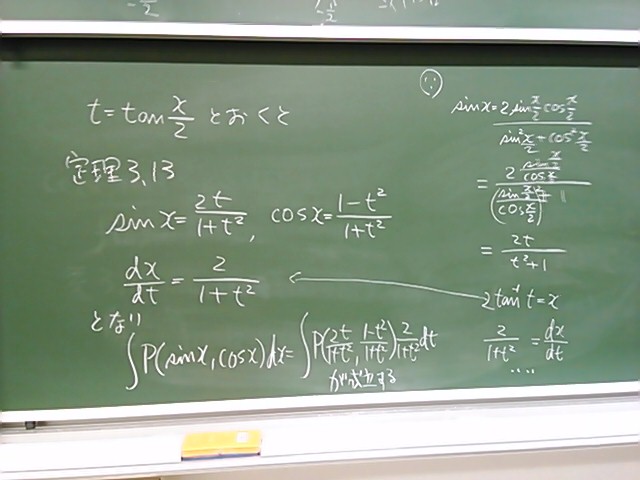 t = tan x/2 とおくと
定理3.13
sin x = 2t/(1+t²), cos x = (1-t²)/(1+t²)
dx/dt = 2/(1+t²)
となり
∫P(sin x, cos x)dx = ∫P(2t/(1+t²), (1-t²)/(1+t²)) 2/(1+t²) dt
が成立する
sin x = (2 sin x/2 cos x/2)/(sin² x/2 + cos² x/2)
= (2 (sin x/2)/(cos x/2))/(((sin x/2)/(cos x/2))² + 1)
= 2t/(t²+1)
2tan⁻¹ t = x
2/(1+t²) = dx/dt